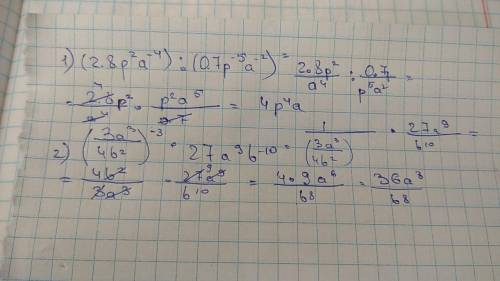 1) (2.8p²a⁻⁴) : (0.7p⁻⁵a⁻²) = 2.8p²/a⁴ : 0.7/p⁵a² =
= 2.8p²/a⁴ · p²a⁵/0.7 = 4p⁴a
2) (3a³/4b²)⁻³ · 27a⁹b⁻¹⁰ = 1/(3a³/4b²) · 27a⁹/b¹⁰ =
= 4b²/3a³ · 27a⁹/b¹⁰ = 4·9a⁶/b8 = 36a⁸/b8